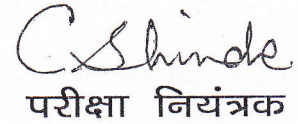 C. Shinde
परीक्षा नियंत्रक